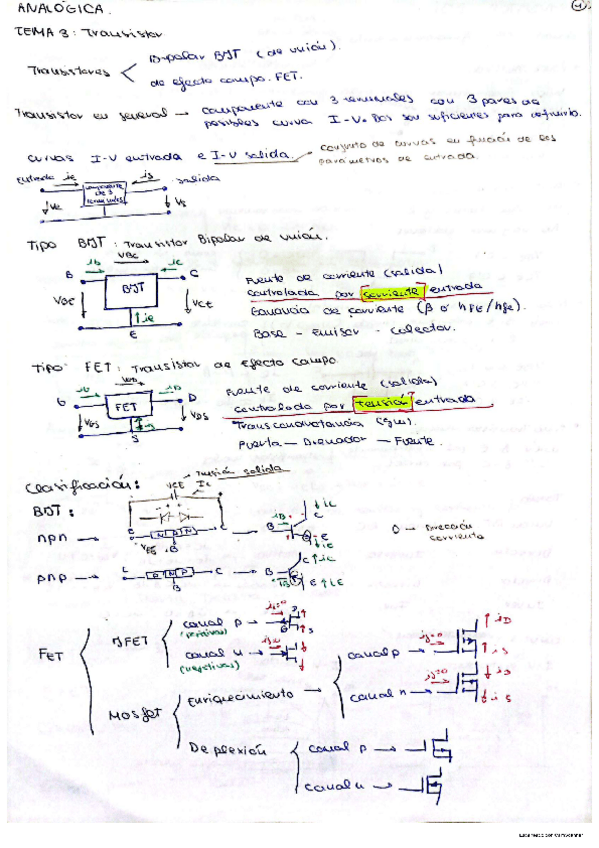 ANALÓGICA.
TEMA 3: Transistor
Transistores
Bipolar BJT (de unión).
de efecto campo. FET.
Transistor en general → componente con 3 terminales con 3 pares de
posibles curva I-V. Dos son suficientes para definirlo.
curvas I-V entrada e I-V salida.
conjunto de curvas en función de los
parámetros de entrada.
entrada ie is salida
componente de 3 terminales
Ve Vs
Tipo BJT: Transistor Bipolar de unión.
VBC
B ib ic C
BJT
VBE VCE
ie
E
Fuente de corriente (salida)
controlada por corriente entrada
Ganancia de corriente (β o hFE/hfe).
Base - Emisor - colector.
Tipo FET: Transistor de efecto campo.
G D
FET
VGS VDS
S
Fuente de corriente (salida)
controlada por tensión entrada
Transconductancia (gm).
Puerta - Drenador - Fuente.
Clasificación:
tensión salida
VCE IC
BJT:
npn →
N P N
B
B C E
iB ic iE
O → Dirección
corriente
pnp →
P N P
C
B
B C E
iB ic iE
FET
JFET
canal p →
(positivas)
ig=0
D G S
canal n →
(negativas)
ig=0
Mosfet
Enriquecimiento →
canal p →
ig=0 iD is
canal n →
ig=0 iD is
Deplexión
canal p →
canal n →